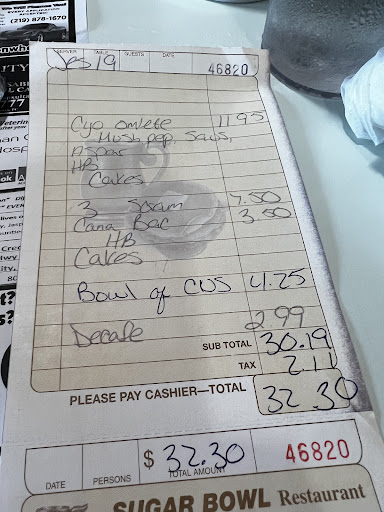 We Will Please You!
EVERY APPLICATION
(219) 878-1670
SERVER TABLE GUESTS DATE
Jes 19 46820
Cyo omlete 11 95
Mush, pep, Saus,
Aspar
HB
Cakes
3 Scram 7.50
Cana Bac 3.50
HB
Cakes
Bowl of CUS 4.25
Decafe 2 99
SUB TOTAL 30.19
TAX 2.11
PLEASE PAY CASHIER—TOTAL 32.30
DATE PERSONS $ 32.30 TOTAL AMOUNT 46820
SUGAR BOWL Restaurant